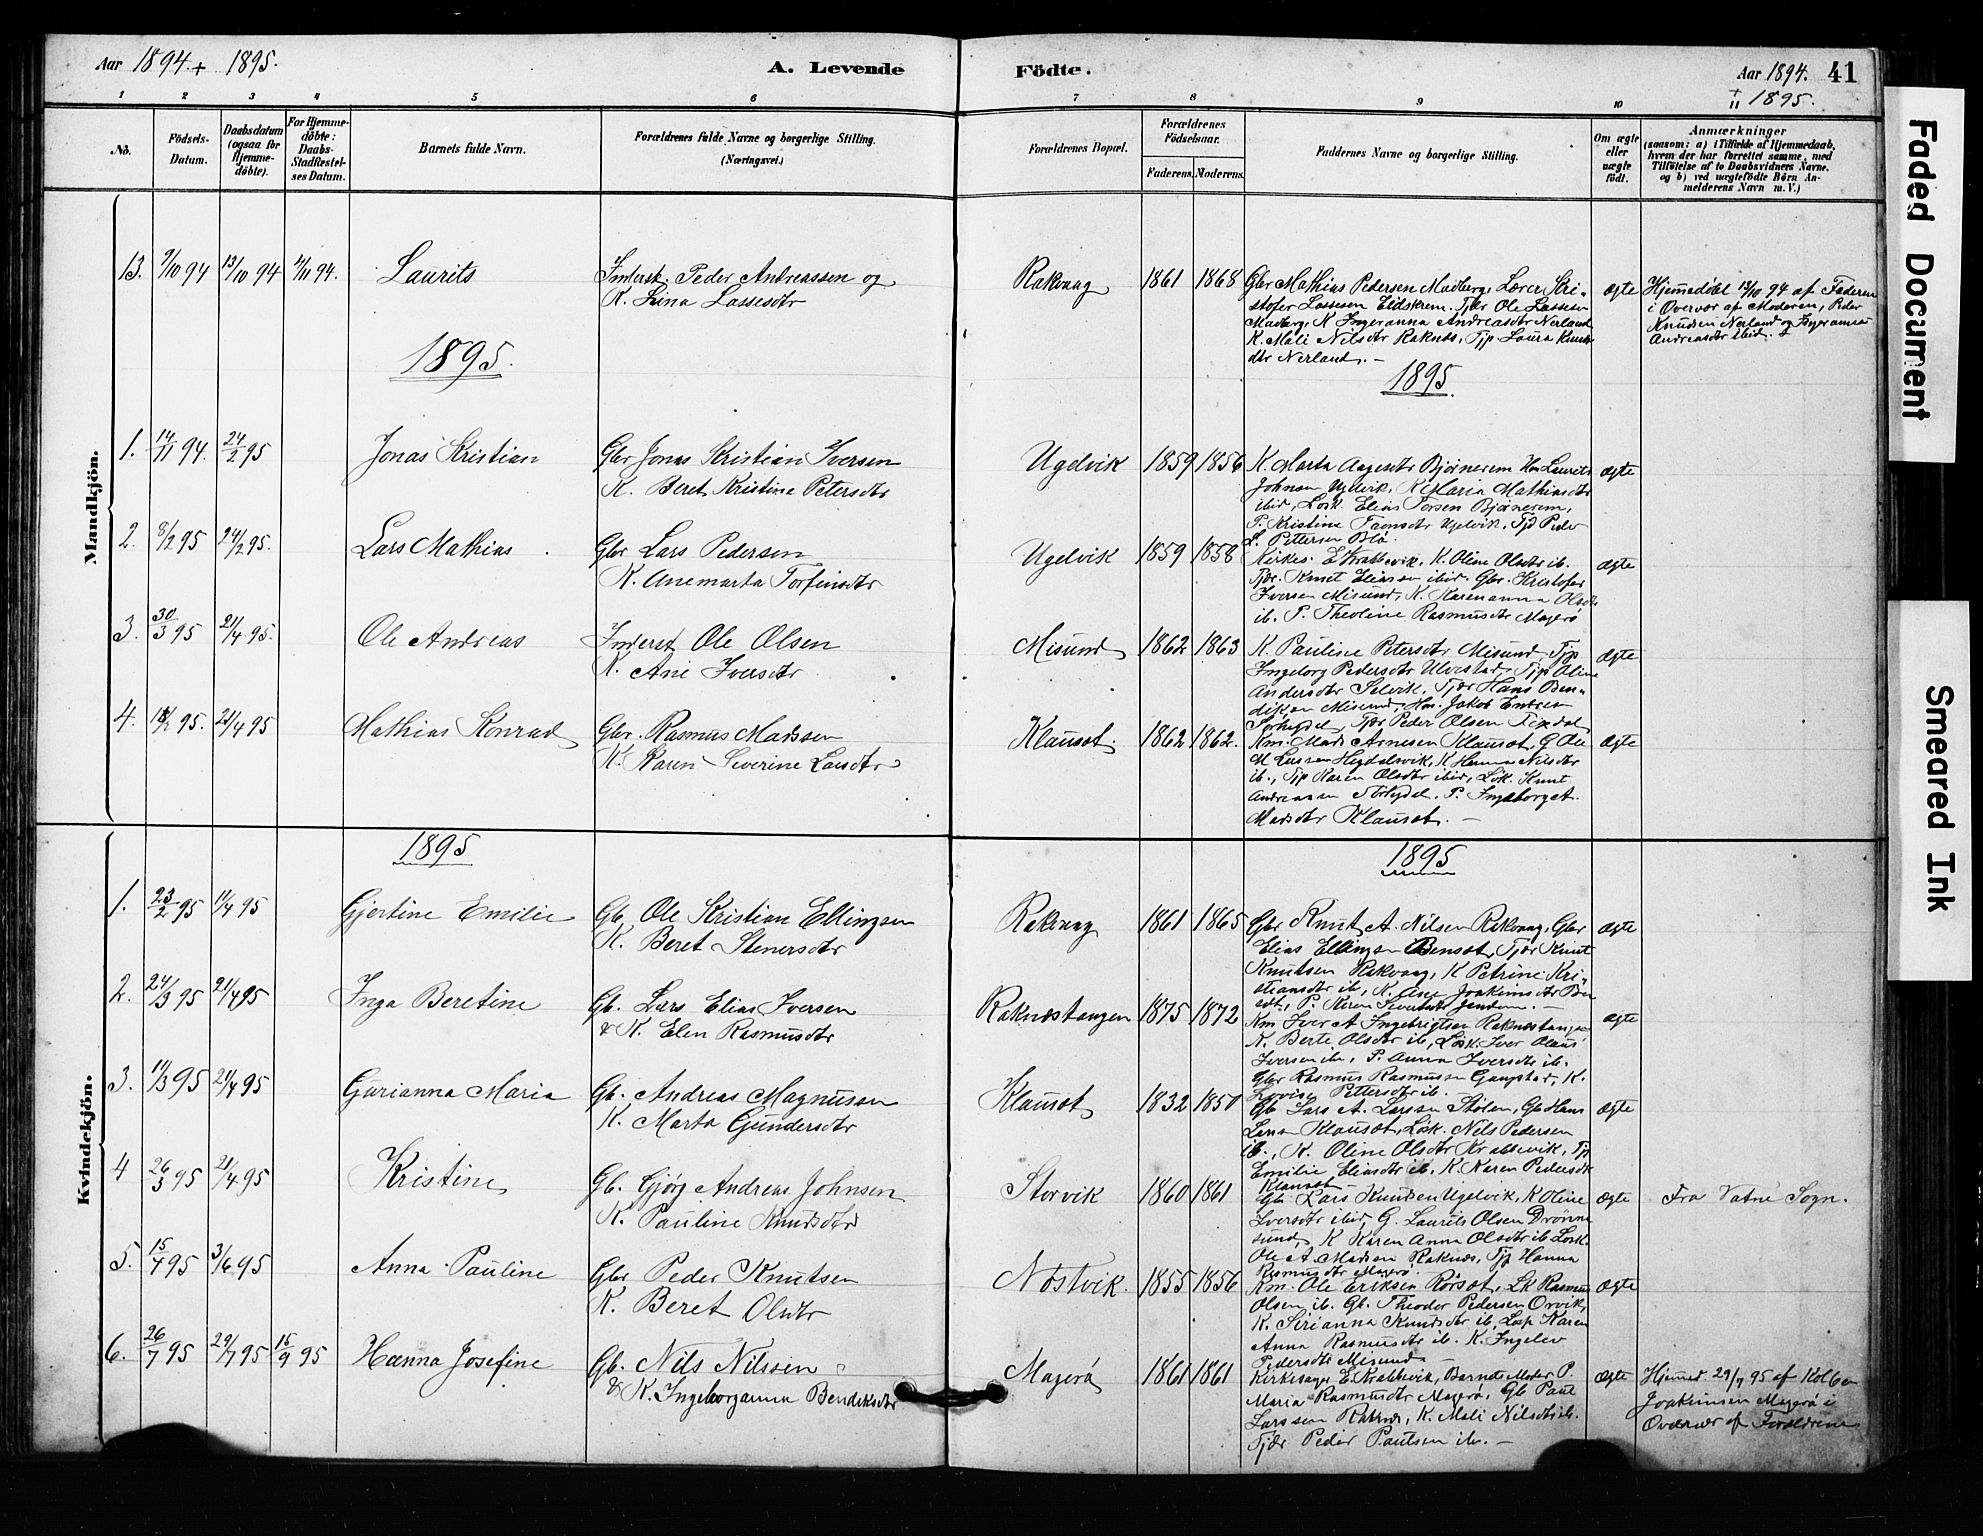 Aar 1894 + 1895.
A. Levende
Födte.
Aar 1894. 41
+ 1895.
1 2 3 4 5 6 7 8 9 10 11
No.
Födsels-
Datum.
Daabsdatum
(ogsaa for
Hjemme-
döbte).
For Hjemme-
döbte:
Daabs-
Stadfæstel-
ses Datum.
Barnets fulde Navn.
Forældrenes fulde Navne og borgerlige Stilling.
(Næringsvei.)
Forældrenes Bopæl.
Forældrenes
Födselsaar.
Faderens. Moderens.
Faddernes Navne og borgerlige Stilling.
Om ægte
eller
uægte
födt.
Anmærkninger
(saasom: a) i Tilfælde af Hjemmedaab,
hvem der har forrettet samme, med
Tilföielse af to Daabsvidners Navne.
og b) ved uægtefödte Börn An-
melderens Navn m. V.)
Mandkjön.
13. 9/10 94 13/10 94 4/11 94. Laurits
Inderst Peder Andreassen og
K. Lina Lassesdtr
Rakvaag 1861 1868
Gbr Mathias Pedersen Madberg, Lærer Kri-
stofer Lassesen Eidskrem. Tjdr Ole Lassesen
Madberg, K Ingeranna Andreasdtr Nerland
K. Mali Nilsdtr Raknes, Tjp. Laura Knuds
dtr Nerland. —
ægte
Hjemmedøbt 13/10 94 af Faderen
i Overvær af Moderen, Peder
Knudsen Nerland og Ingeranna
Andreasdtr ibid.
1895.
1895.
1. 14/11 94. 24/2 95 Jonas Kristian
Gbr Jonas Kristian Iversen
K. Beret Kristine Petersdtr
Ugelvik 1859 1856
K. Marta Aagesdtr Bjørnerem Hm Laurits
Johnsen Ugelvik, K Maria Mathiasdtr
ibid, Løsk. Elias Torsen Bjørnerem,
P. Kristine Tomsdtr Ugelvik, Tjd Peder
L. Pettersen Blø.
ægte
2. 8/2 95 24/2 95. Lars Mathias
Gbr Lars Pedersen
K. Anemarta Torfinsdtr
Ugelvik 1859 1858
Kirkes. E Krabbevik, K. Oline Olsdtr ib.
Tjdr. Knut Eliassen ibid. Gbr. Kristofer
Iversen Misund, K. Karenanna Olsdtr
ib. P. Theoline Rasmusdtr Magerø
ægte
3. 30/3 95 21/4 95. Ole Andreas
Inderst Ole Olsen
K. Ane Iversdtr
Misund 1862 1863
K. Pauline Petersdtr Misund, Tjp
Ingeborg Pedersdtr Ulvestad, Tjp Oline
Andersdtr Selvik, Tjdr Hans Ben-
diksen Misund, Hm. Jakob Endresen
Sørhejdal, Tjdr Peder Olsen Findal
ægte
4. 18/2 95. 21/4 95 Mathias Konrad
Gbr. Rasmus Madssen
K. Karen Severine Larsdtr
Klauset 1862 1862.
Km. Mads Arnesen Klauset, G Ole
M Larssen Hegdalsvik, K Hanna Nilsdtr
ib., Tjp Karen Olsdtr ibid, Løsk. Knut
Andreassen Nørhejdal. P. Ingeborg A.
Madsdtr Klauset. —
ægte
Kvindekjön.
1895
1895
1. 23/2 95 11/4 95 Gjertine Emilie
Gb. Ole Kristian Ellingsen
K. Beret Stenersdtr
Rakvaag 1861 1865
Gbr Knut A. Nilsen Rakvaag, Gbr
Elias Ellingsen Bensæt, Tjdr Knut
Knutsen Rakvaag, K Petrine Kri-
stiansdtr ib, K. Ane Joakimsdtr Ben
sæt, P. Karen Sivertsdt Jendem. —
ægte
2. 24/3 95 21/4 95 Inga Beretine
Gb. Lars Elias Iversen
& K. Elen Rasmusdtr
Raknestangen 1875 1872
Km Iver A Ingebrigtsen Raknestangen
K. Berte Olsdtr ib, Løsk. Iver Olaus
Iversen ib, P. Anna Iversdtr ib.
Gbr Rasmus Rasmussen Gangstad, K.
Lovise Pettersdtr ib.
ægte
3. 11/3 95 21/4 95 Gurianna Maria
Gb. Andreas Magnussen
K. Marta Gundersdtr
Klauset 1832 1850
Gb Lars A. Larssen Stølen, Gb Hans
Larsn Klauset, Løsk. Nils Pedersen
ib., K. Oline Olsdtr Krabbevik, Tjp
Emilie Eliasdtr ib, K. Karen Pedersdt
Klauset
ægte
4 26/3 95 21/4 95 Kristine
Gb. Gjørg Andreas Johnsen
K. Pauline Knudsdtr
Storvik 1860 1861
Gb Lars Knudsen Ugelvik, K Oline
Iversdtr ibid, G. Laurits Olsen Drønne
sund, K Karen Anna Olsdtr ib Løsk.
Ole A. Madsen Raknes, Tjp Hanna
Rasmusdtr Magerø.
ægte
Fra Vatne Sogn.
5. 15/4 95 3/6 95 Anna Pauline
Gbr Peder Knutsen
K. Beret Olsdtr
Nøstvik. 1855 1856
Km. Ole Eriksen Rørset, Lk Rasmus
Olsen ib. Gb. Theodor Pedersen Orvik,
K. Serianna Knudsdtr ib, Løsk Karen
Anna Rasmusdtr ib. K. Ingelev
Pedersdtr Misund —
ægte
6. 26/7 95 29/7 95 15/9 95 Hanna Josefine
Gb. Nils Nilssen
& K. Ingeborganna Bendiksdtr
Magerø 1861 1861
Kirkesanger E. Krabbevik, Barnets Moder P.
Maria Rasmusdtr Magerø, Gb Paul
Larssen Raknes, K. Mali Nilsdtr ib.
Tjdr Peder Paulsen ib. —
ægte
Hjemmed 29/7 95 af Kolben
Joakimsen Magerø i
Overvær af Forældrene
Faded Document
Smeared Ink